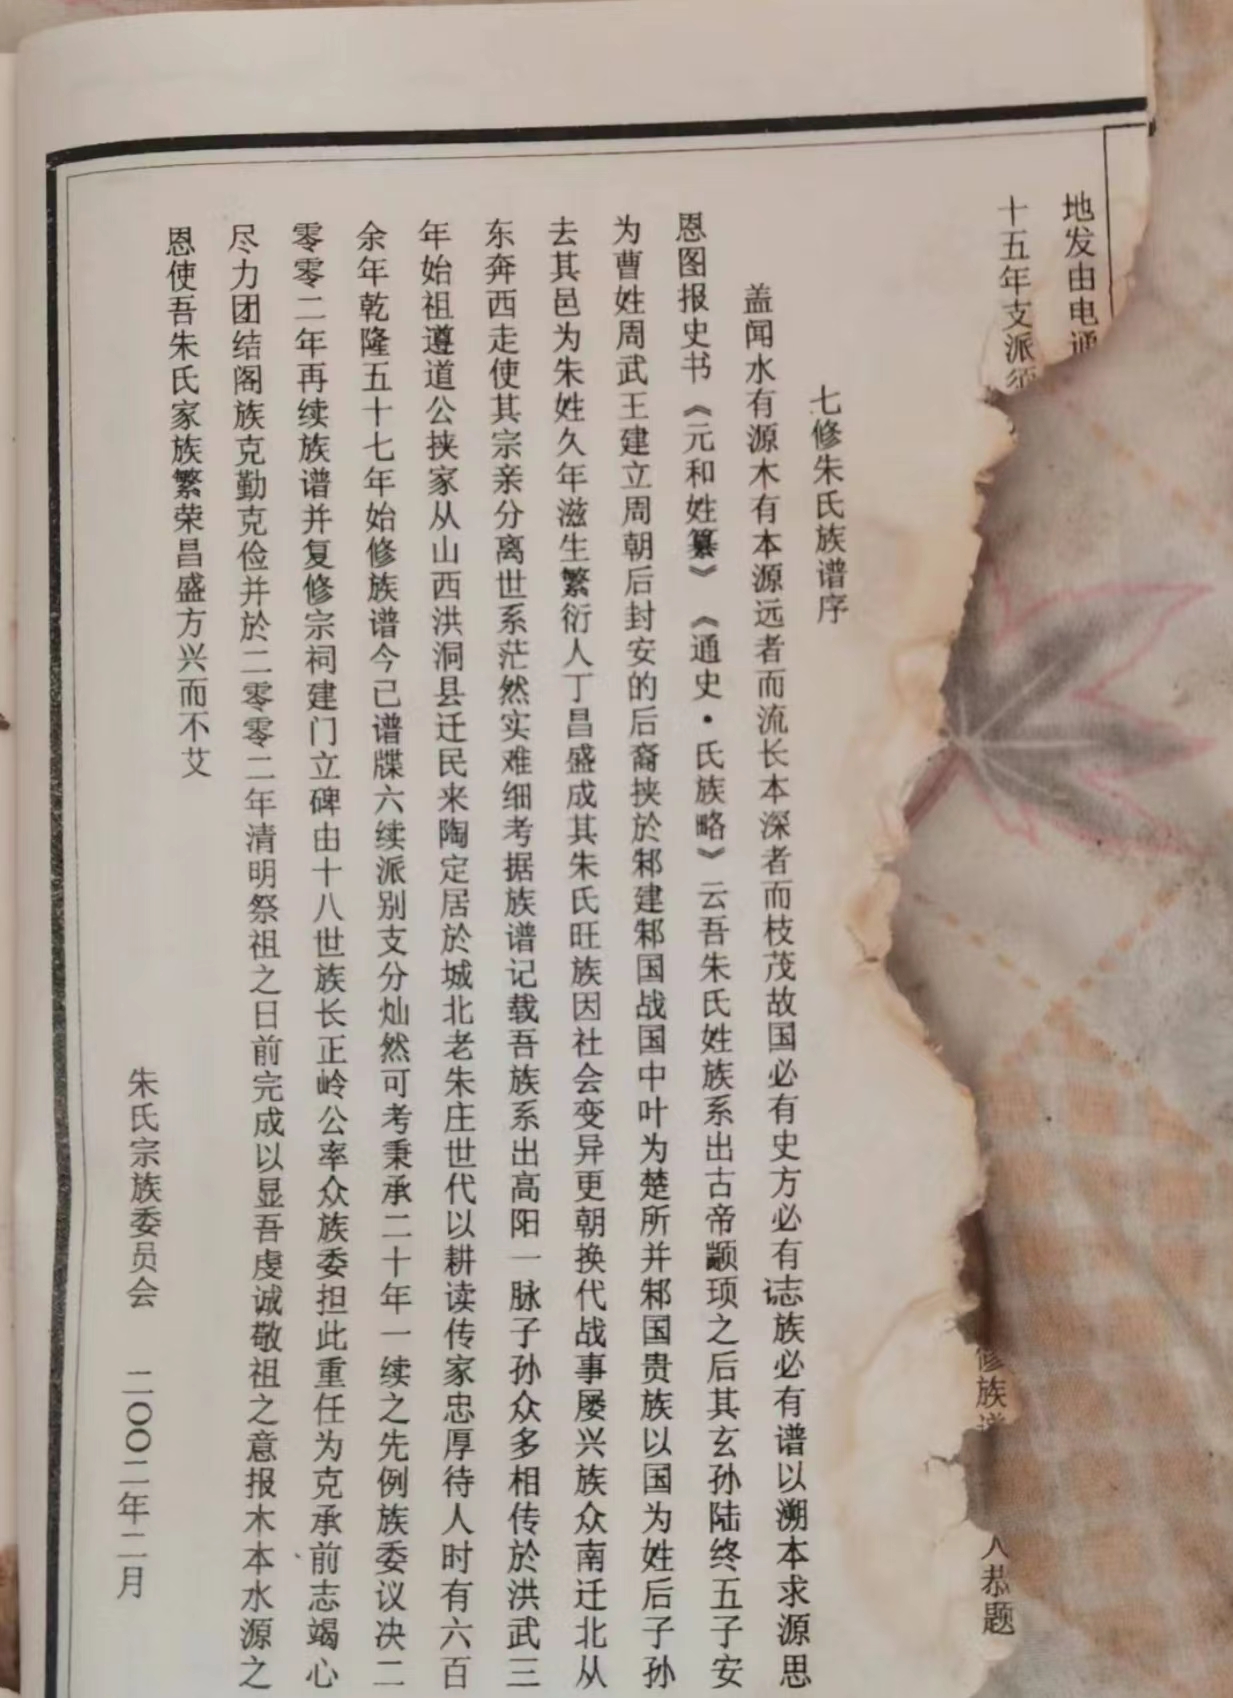 地发由电通
十五年支派须
修族谱
人恭题
七修朱氏族谱序
盖闻水有源木有本源远者而流长本深者而枝茂故国必有史方必有志族必有谱以溯本求源思
恩图报史书《元和姓纂》《通史·氏族略》云吾朱氏姓族系出古帝颛顼之后其玄孙陆终五子安
为曹姓周武王建立周朝后封安的后裔挟於邾建邾国战国中叶为楚所并邾国贵族以国为姓后子孙
去其邑为朱姓久年滋生繁衍人丁昌盛成其朱氏旺族因社会变异更朝换代战事屡兴族众南迁北从
东奔西走使其宗亲分离世系茫然实难细考据族谱记载吾族系出高阳一脉子孙众多相传於洪武三
年始祖遵道公挟家从山西洪洞县迁民来陶定居於城北老朱庄世代以耕读传家忠厚待人时有六百
余年乾隆五十七年始修族谱今已谱牒六续派别支分灿然可考秉承二十年一续之先例族委议决二
零零二年再续族谱并复修宗祠建门立碑由十八世族长正岭公率众族委担此重任为克承前志竭心
尽力团结阁族克勤克俭并於二零零二年清明祭祖之日前完成以显吾虔诚敬祖之意报木本水源之
恩使吾朱氏家族繁荣昌盛方兴而不艾
朱氏宗族委员会 二〇〇二年二月